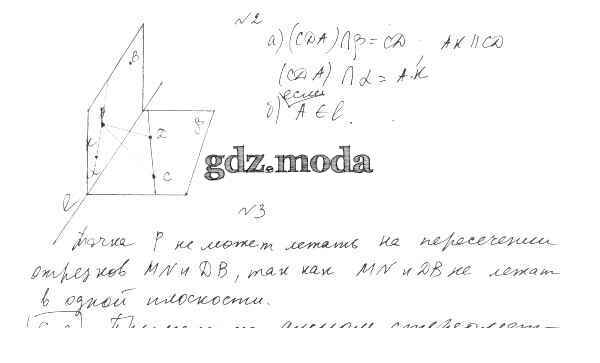 №2
а) (CDA)∩β = CD. AK∥CD
(CDA) ∩ α = AK
если
б) A ∈ l.
gdz.moda
№3
Точка P не может лежать на пересечении
отрезков MN и DB, так как MN и DB не лежат
в одной плоскости.